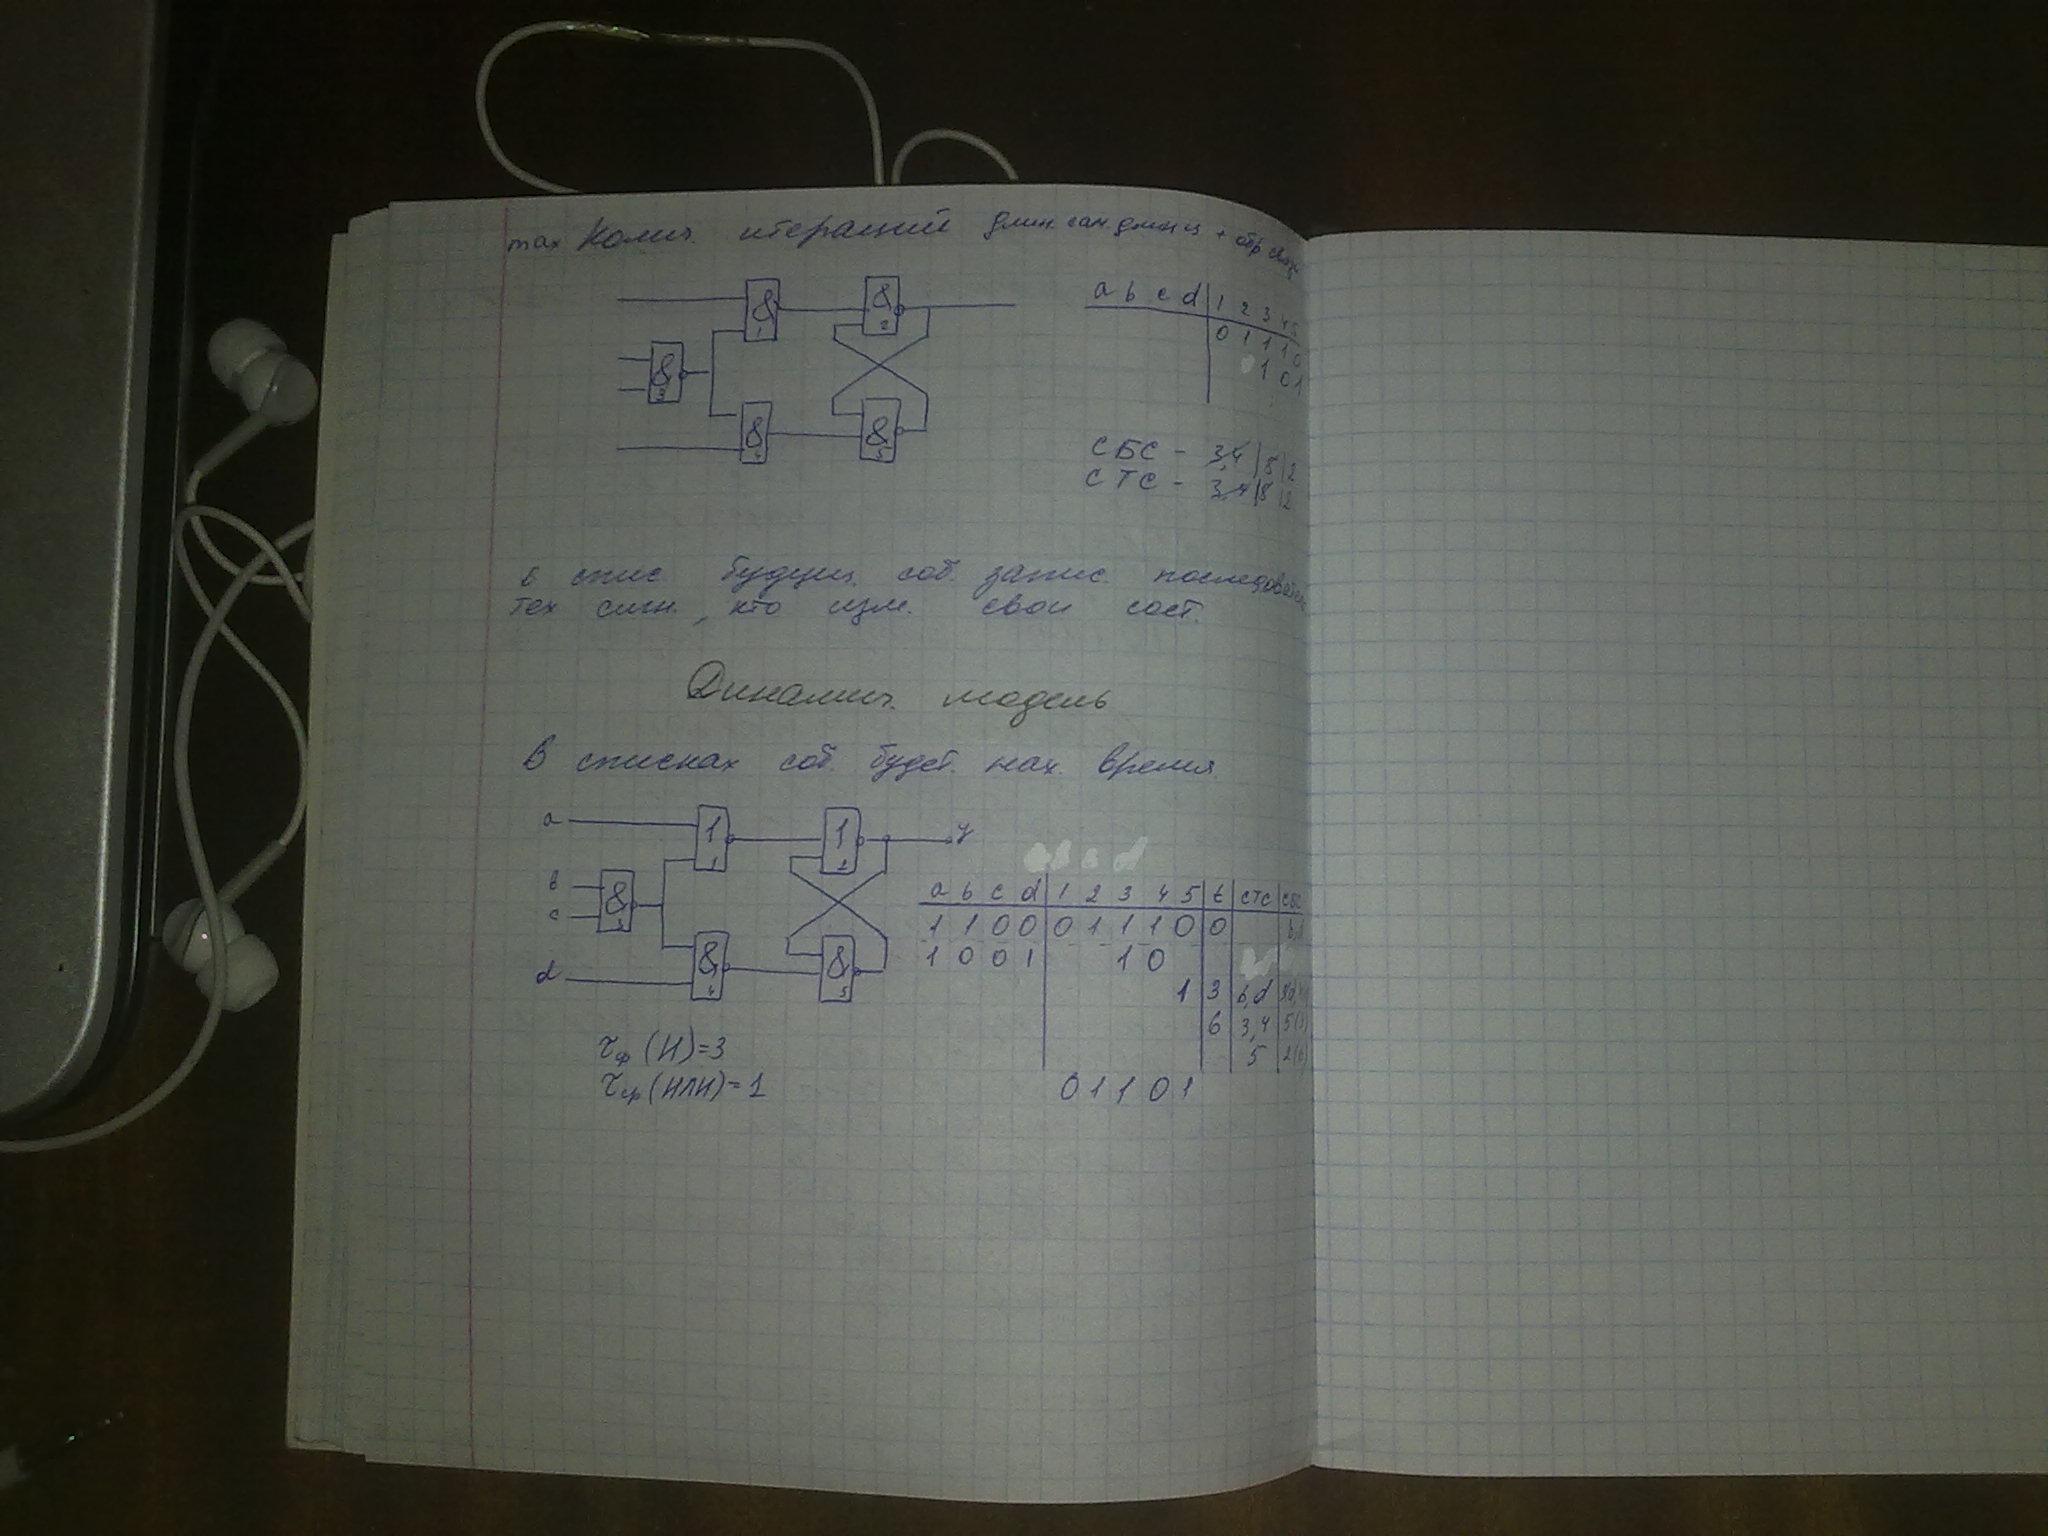 max Колич. итераций длин. сам. длин ц + обр связь
&
1
&
2
&
3
&
4
&
5
a b c d 1 2 3 4 5
0 1 1 1 0
1 0 1
СБС - 3,4 | 5 | 2
СТС - 3,4 | 5 | 2
в спис. будущ. соб. запис. последоват
тех сигн., кто изм. свои сост.
Динамич. модель
В списках соб. будет. нах. время
a
b
c
d
1
1
1
2
&
3
&
4
&
5
y
a b c d 1 2 3 4 5 t СТС СБС
1 1 0 0 0 1 1 1 0 0
1 0 0 1 1 0
1 3 b,d
6 3,4 5(3)
5 2(6)
0 1 1 0 1
τф (И)=3
τср (ИЛИ)=1